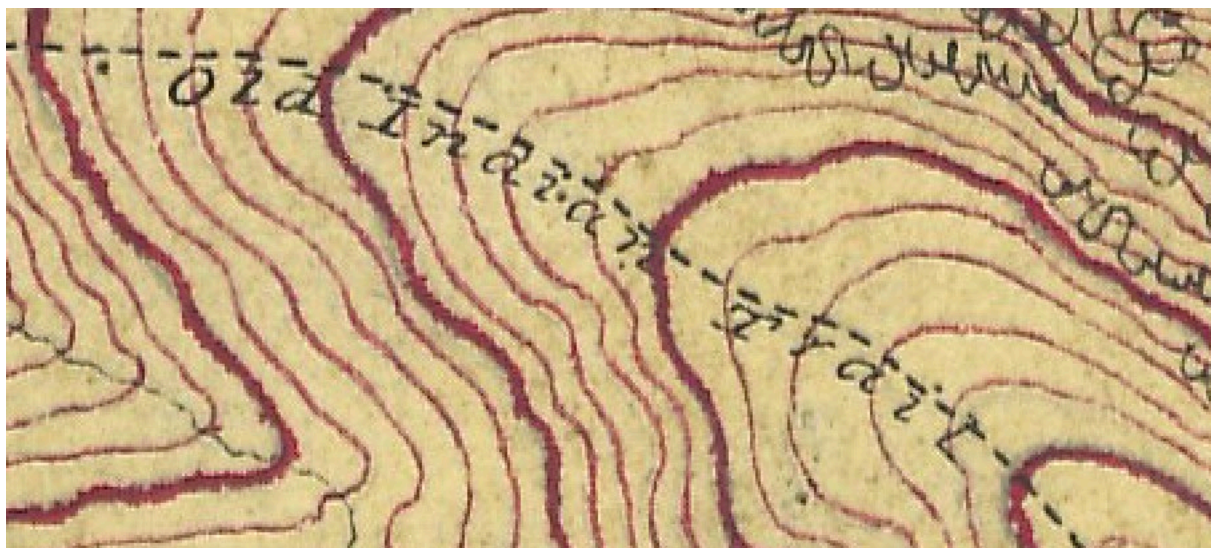 Old Indian Trail